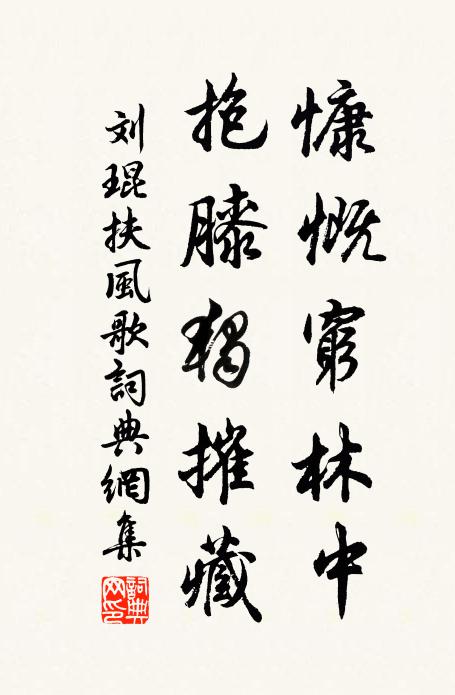 慷慨窮林中
抱膝獨摧藏
刘琨扶風歌詞典網集
詞典網印